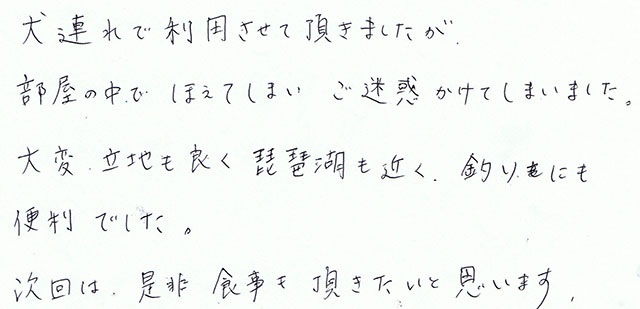 犬連れで利用させて頂きましたが、
部屋の中でほえてしまい ご迷惑かけてしまいました。
大変、立地も良く琵琶湖も近く、釣りにも
便利でした。
次回は、是非食事も頂きたいと思います。